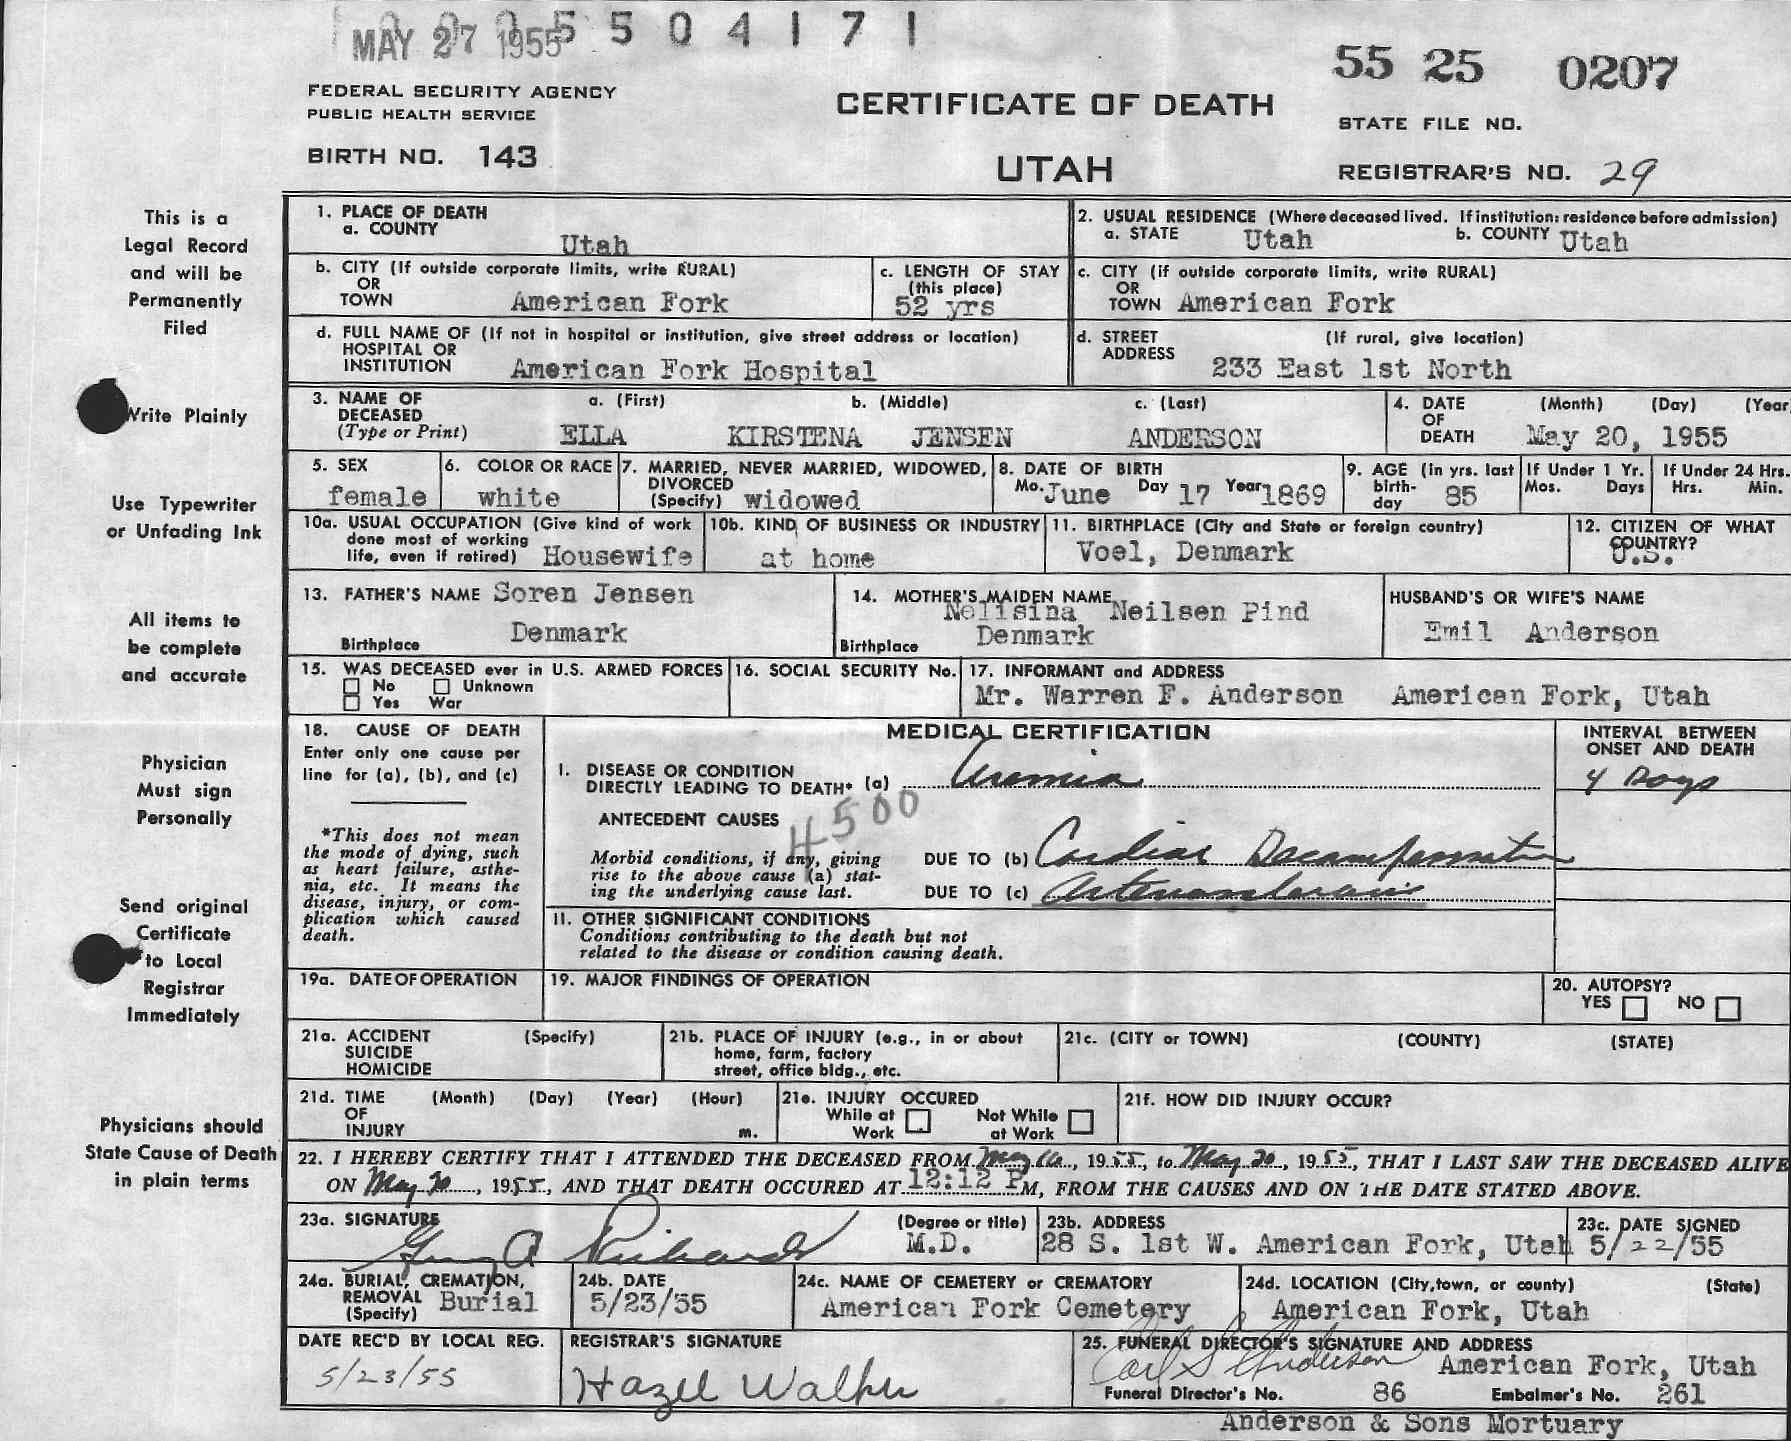 MAY 27 1955 5 5 0 4 1 7 1
55 25 0207
FEDERAL SECURITY AGENCY
PUBLIC HEALTH SERVICE
CERTIFICATE OF DEATH
STATE FILE NO.
BIRTH NO. 143
UTAH
REGISTRAR'S NO. 29
This is a
Legal Record
and will be
Permanently
Filed
Write Plainly
Use Typewriter
or Unfading Ink
All items to
be complete
and accurate
Physician
Must sign
Personally
Send original
Certificate
to Local
Registrar
Immediately
Physicians should
State Cause of Death
in plain terms
1. PLACE OF DEATH
a. COUNTY
Utah
2. USUAL RESIDENCE (Where deceased lived. If institution: residence before admission)
a. STATE Utah b. COUNTY Utah
b. CITY (If outside corporate limits, write RURAL)
OR
TOWN American Fork
c. LENGTH OF STAY
(this place)
52 yrs
c. CITY (if outside corporate limits, write RURAL)
OR
TOWN American Fork
d. FULL NAME OF (If not in hospital or institution, give street address or location)
HOSPITAL OR
INSTITUTION American Fork Hospital
d. STREET (If rural, give location)
ADDRESS
233 East 1st North
3. NAME OF a. (First) b. (Middle) c. (Last)
DECEASED
(Type or Print) ELLA KIRSTENA JENSEN ANDERSON
4. DATE (Month) (Day) (Year
OF
DEATH May 20, 1955
5. SEX
female
6. COLOR OR RACE
white
7. MARRIED, NEVER MARRIED, WIDOWED,
DIVORCED
(Specify) widowed
8. DATE OF BIRTH
Mo. June Day 17 Year 1869
9. AGE (in yrs. last
birth-
day 85
If Under 1 Yr.
Mos. Days
If Under 24 Hrs.
Hrs. Min.
10a. USUAL OCCUPATION (Give kind of work
done most of working
life, even if retired) Housewife
10b. KIND OF BUSINESS OR INDUSTRY
at home
11. BIRTHPLACE (City and State or foreign country)
Voel, Denmark
12. CITIZEN OF WHAT
COUNTRY?
U.S.
13. FATHER'S NAME Soren Jensen
Birthplace Denmark
14. MOTHER'S MAIDEN NAME
Nelisina Neilsen Pind
Birthplace Denmark
HUSBAND'S OR WIFE'S NAME
Emil Anderson
15. WAS DECEASED ever in U.S. ARMED FORCES
No Unknown
Yes War
16. SOCIAL SECURITY No.
17. INFORMANT and ADDRESS
Mr. Warren F. Anderson American Fork, Utah
18. CAUSE OF DEATH
Enter only one cause per
line for (a), (b), and (c)
*This does not mean
the mode of dying, such
as heart failure, asthe-
nia, etc. It means the
disease, injury, or com-
plication which caused
death.
MEDICAL CERTIFICATION
I. DISEASE OR CONDITION
DIRECTLY LEADING TO DEATH* (a) Uremia
4500
ANTECEDENT CAUSES
Morbid conditions, if any, giving
rise to the above cause (a) stat-
ing the underlying cause last.
DUE TO (b) Cardiac Decompensation
DUE TO (c) Arteriosclerosis
II. OTHER SIGNIFICANT CONDITIONS
Conditions contributing to the death but not
related to the disease or condition causing death.
INTERVAL BETWEEN
ONSET AND DEATH
4 Days
19a. DATE OF OPERATION
19. MAJOR FINDINGS OF OPERATION
20. AUTOPSY?
YES NO
21a. ACCIDENT (Specify)
SUICIDE
HOMICIDE
21b. PLACE OF INJURY (e.g., in or about
home, farm, factory
street, office bldg., etc.
21c. (CITY or TOWN) (COUNTY) (STATE)
21d. TIME (Month) (Day) (Year) (Hour)
OF
INJURY m.
21e. INJURY OCCURED
While at Not While
Work at Work
21f. HOW DID INJURY OCCUR?
22. I HEREBY CERTIFY THAT I ATTENDED THE DECEASED FROM May 16, 1955, to May 20, 1955, THAT I LAST SAW THE DECEASED ALIVE
ON May 20, 1955, AND THAT DEATH OCCURED AT 12:12 P M, FROM THE CAUSES AND ON THE DATE STATED ABOVE.
23a. SIGNATURE (Degree or title)
Guy A Richards M.D.
23b. ADDRESS
28 S. 1st W. American Fork, Utah
23c. DATE SIGNED
5/22/55
24a. BURIAL, CREMATION,
REMOVAL
(Specify) Burial
24b. DATE
5/23/55
24c. NAME OF CEMETERY or CREMATORY
American Fork Cemetery
24d. LOCATION (City, town, or county) (State)
American Fork, Utah
DATE REC'D BY LOCAL REG.
5/23/55
REGISTRAR'S SIGNATURE
Hazel Walker
25. FUNERAL DIRECTOR'S SIGNATURE AND ADDRESS
Carl S Anderson American Fork, Utah
Funeral Director's No. 86 Embalmer's No. 261
Anderson & Sons Mortuary